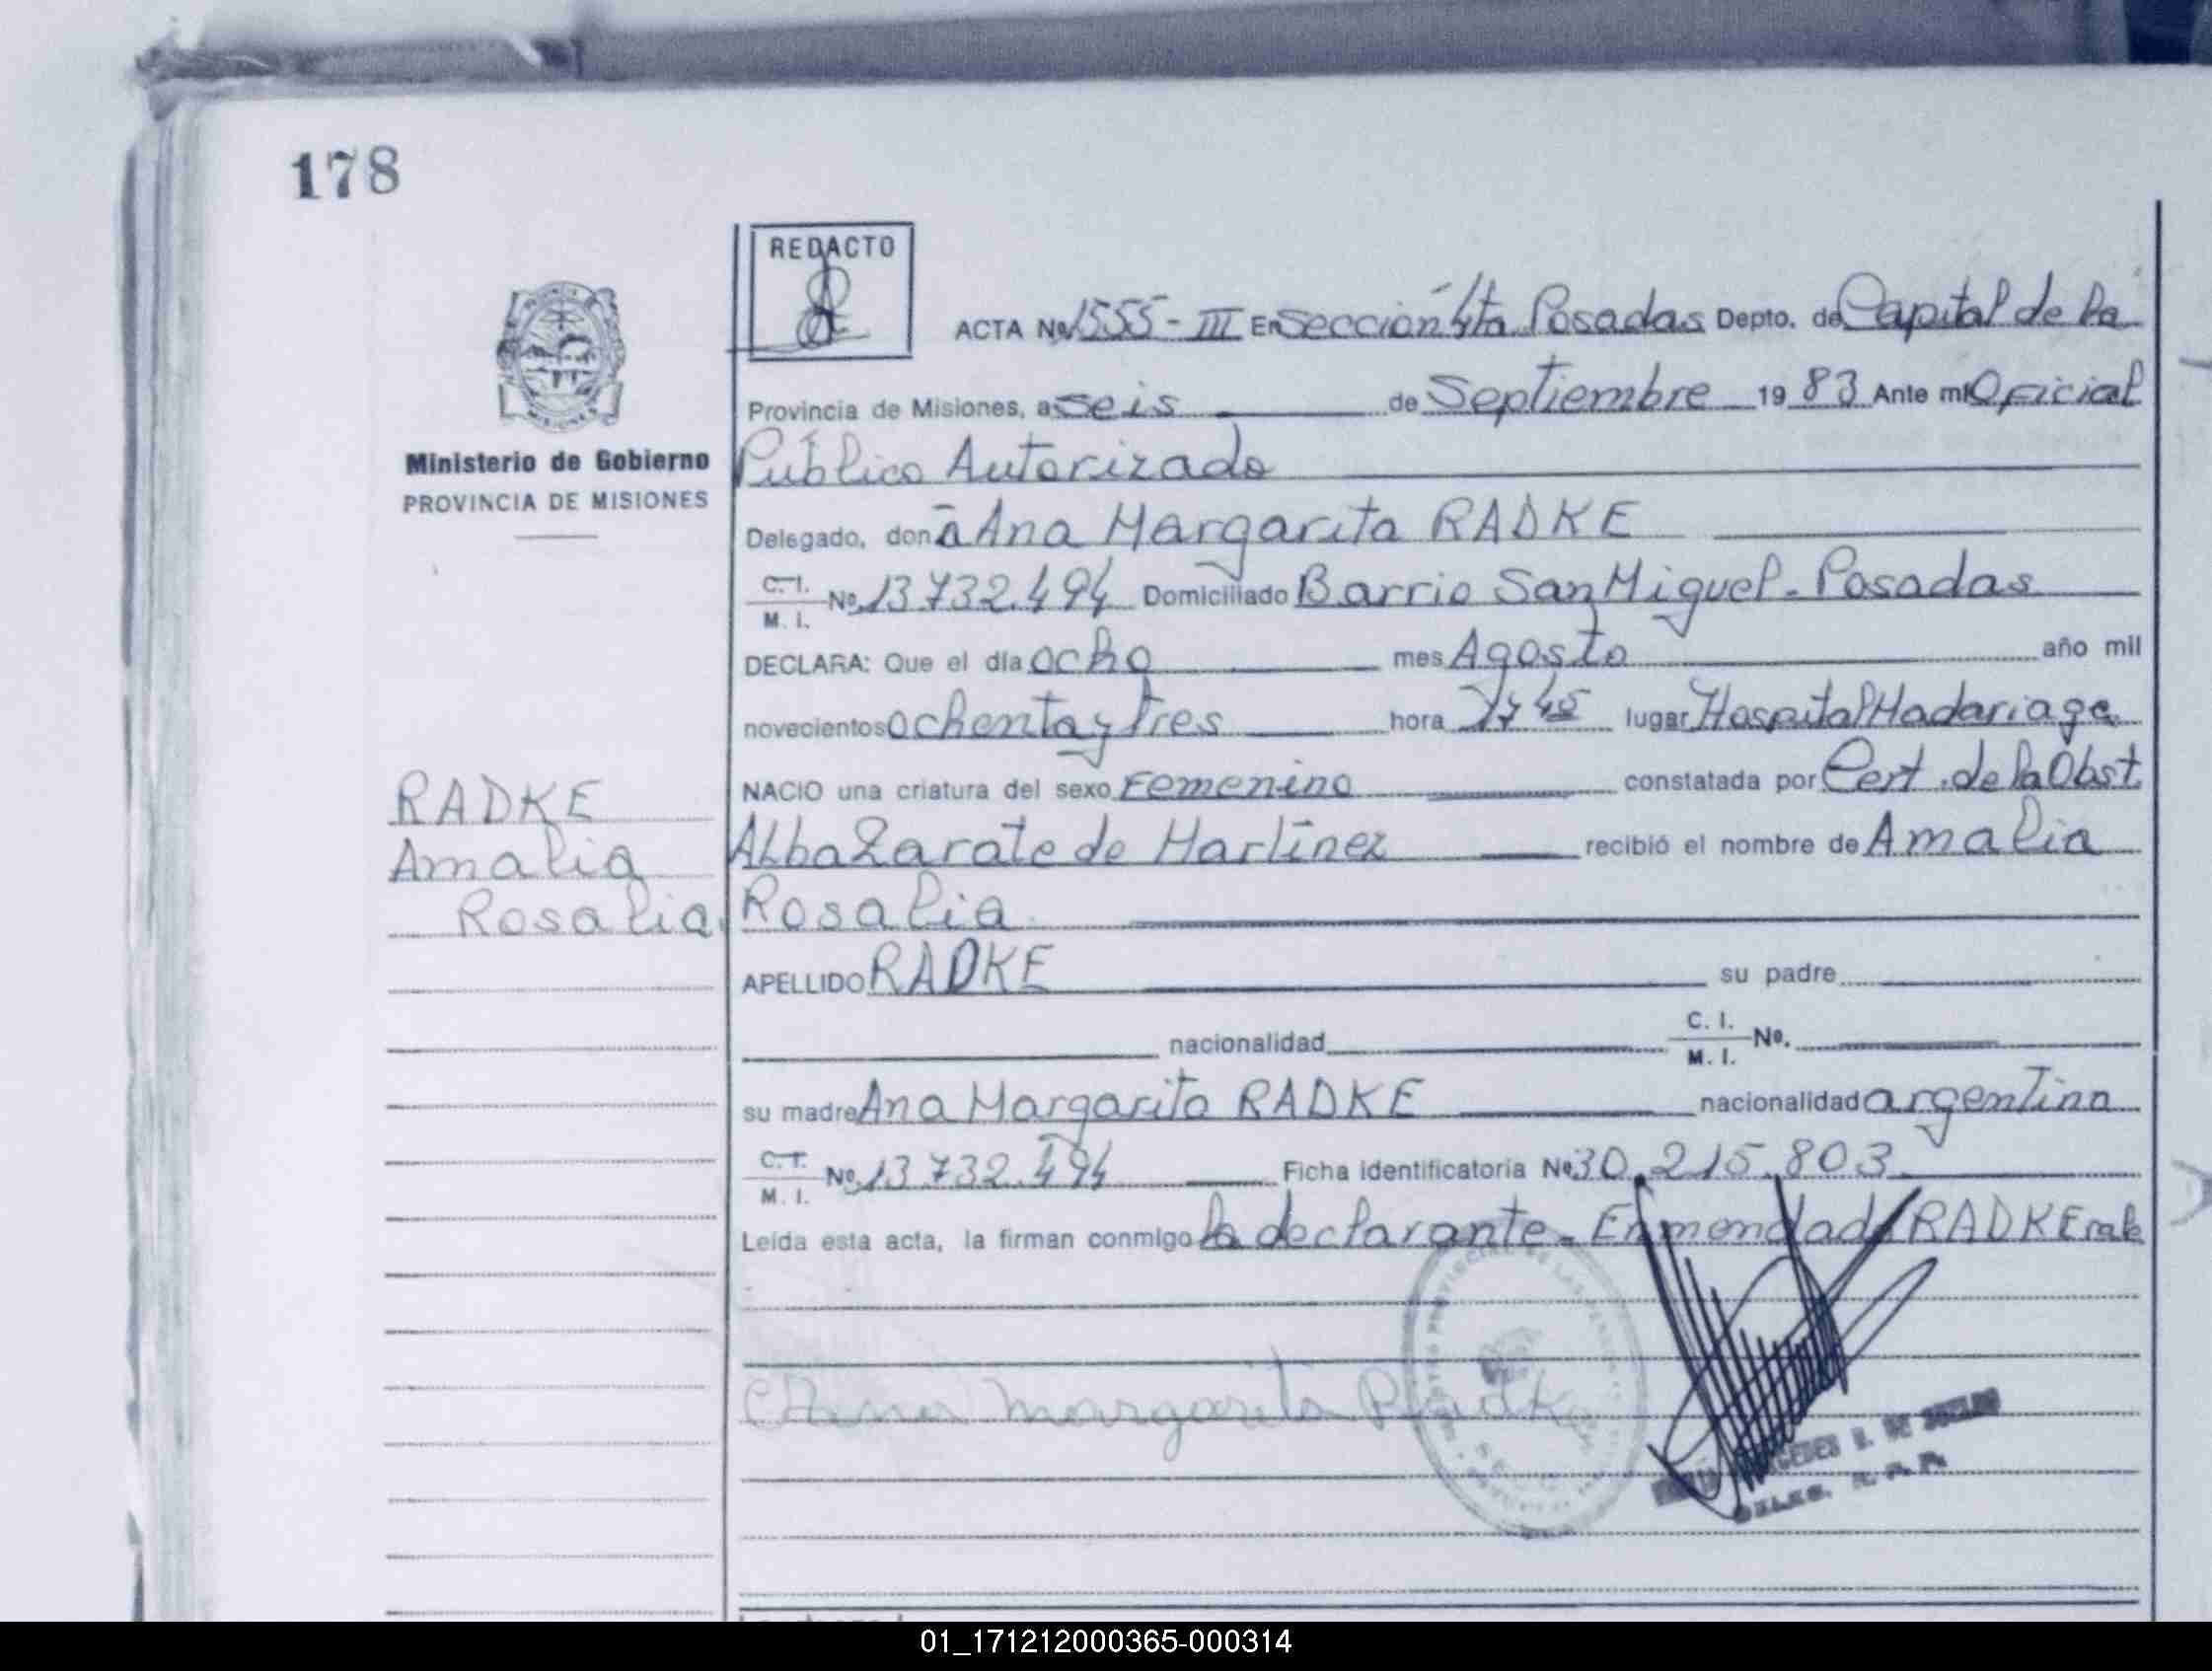 178
REDACTO
ACTA Nº 1555-III En Sección 4ta Posadas Depto. de Capital de la
Provincia de Misiones, a seis de Septiembre 1983 Ante mi Oficial
Ministerio de Gobierno
PROVINCIA DE MISIONES
Público Autorizado
Delegado, donã Ana Margarita RADKE
C.I. M.I. Nº 13.732.494 Domiciliado Barrio San Miguel - Posadas
DECLARA: Que el día ocho mes Agosto año mil
novecientos ochenta y tres hora lugar Hospital Madariaga
NACIO una criatura del sexo Femenino constatada por Cert. de la Obst.
Alba Zarate de Martínez recibió el nombre de Amalia
Rosalia
RADKE
Amalia
Rosalia
APELLIDO RADKE su padre
nacionalidad C. I. M. I. Nº.
su madre Ana Margarita RADKE nacionalidad argentina
C.I. M.I. Nº 13.732.494 Ficha identificatoria Nº 30.215.803
Leída esta acta, la firman conmigo la declarante - Enmendado RADKE vale
Ana Margarita Radke
01_171212000365-000314